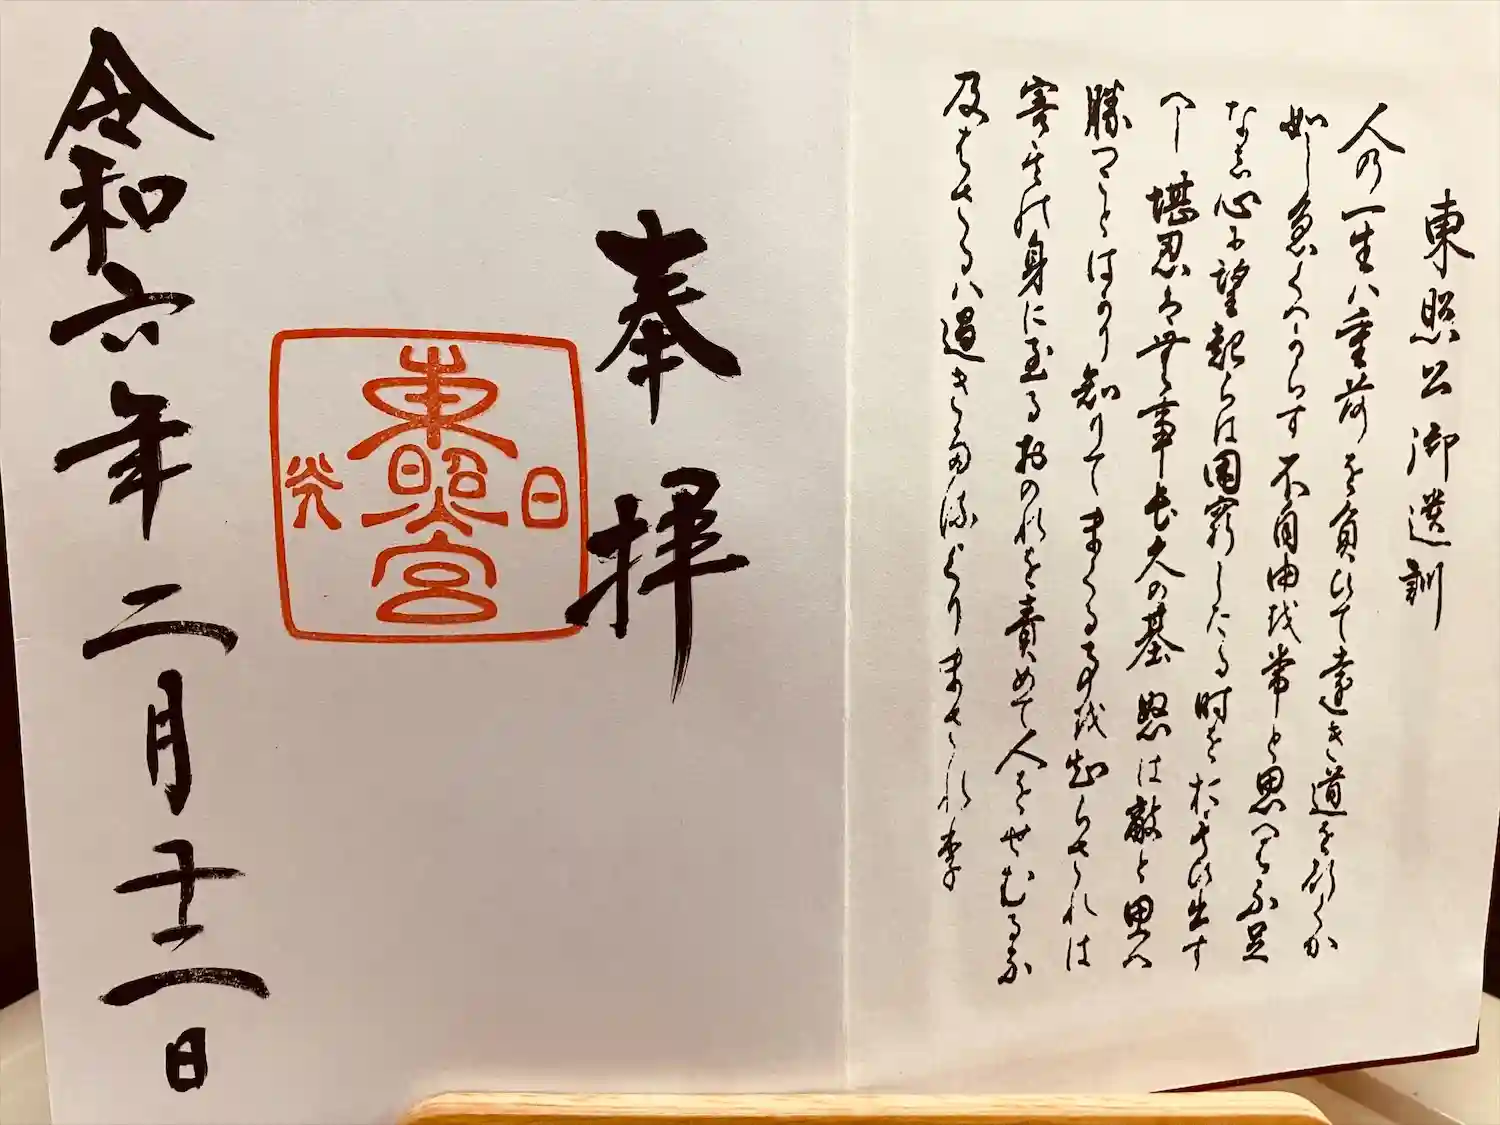 東照公御遺訓
人の一生ハ重荷を負ひて遠き道を行くか
如し急くへからす不自由を常と思へは不足
なし心に望起らは困窮したる時を思ひ出す
へし堪忍は無事長久の基怒は敵と思へ
勝つことはかり知りてまくる事を知らされは
害其の身に至るおのれを責めて人をせむるな
及はさるハ過きたるよりまされり
奉拝
日光
東照宮
令和六年二月十二日